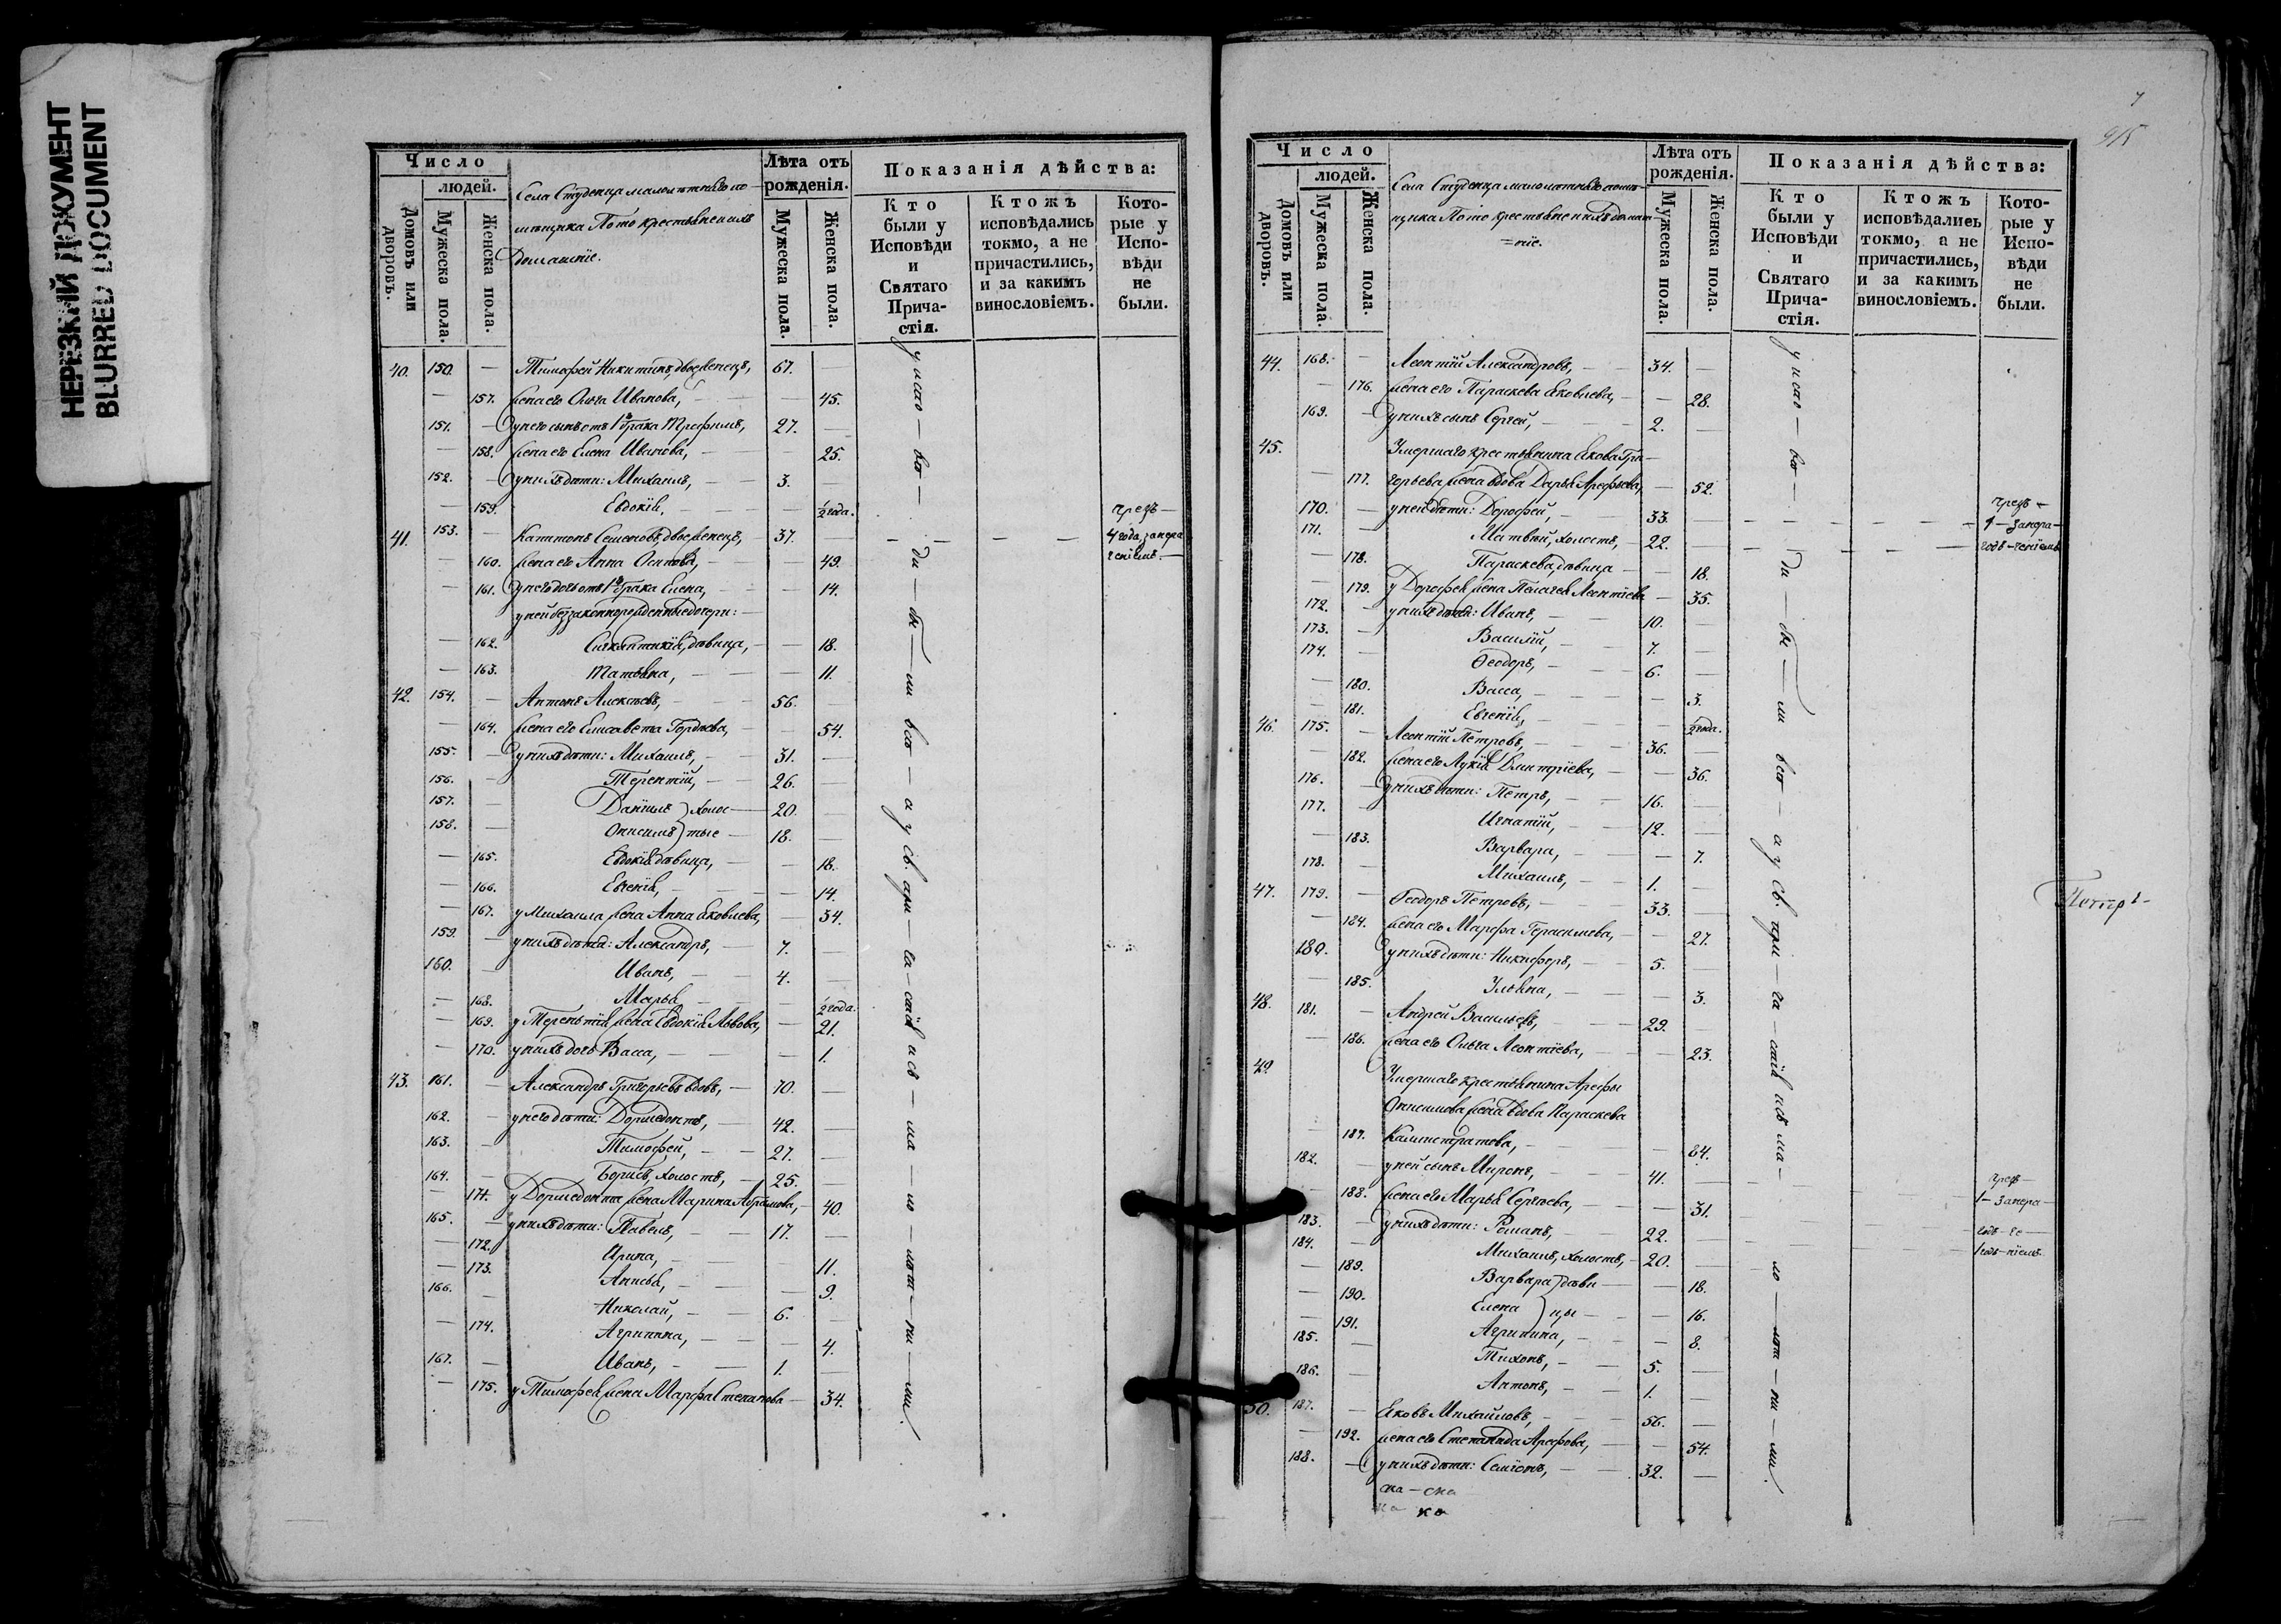 НЕРЕЗКИЙ ДОКУМЕНТ
BLURRED DOCUMENT
Число
людей.
Домовъ или дворовъ.
Мужеска пола.
Женска пола.
Села Студенца малолѣтнаго по-
мѣщика крестьяне и ихъ
домашніе.
Лѣта отъ рожденія.
Мужеска пола.
Женска пола.
Показанія дѣйства:
Кто были у Исповѣди и Святаго Прича-стія.
Ктожъ исповѣдались токмо, а не причастились, и за какимъ винословіемъ.
Кото-рые у Испо-вѣди не были.
40. 150. — Тимофей Никитинъ, двоеженецъ, 67. —
— 157. жена его Ольга Иванова, — 45.
151. — у него сынъ отъ 1го брака Трофимъ, 27. —
— 158. жена его Елена Иванова, — 25.
152. — у нихъ дѣти: Михаилъ, 3. —
— 159. Евдокія, — ½ года.
41. 153. — Капитонъ Семеновъ, двоеженецъ, 37. —
чрезъ — 4 года, за нера
ченіемъ —
— 160. жена его Анна Осипова, — 49.
— 161. у него дочь отъ 1го брака Елена, — 14.
у ней беззаконнорожденные дочери:
— 162. Синклитикія, дѣвица, — 18.
— 163. Татьяна, — 11.
42. 154. — Антонъ Алексѣевъ, 56. —
— 164. жена его Елисавета Гордѣева, — 54.
155. — у нихъ дѣти: Михаилъ, 31. —
156. — Терентій, 26.
157. — Даніилъ } холос— 20.
158. — Онисимъ } тые — 18.
— 165. Евдокія дѣвица, — 18.
— 166. Евгенія, — 14.
— 167. у Михаила жена Анна Яковлева, — 34.
159. — у нихъ дѣти: Александръ, 7. —
160. — Иванъ, 4. —
— 168. Марья, — ½ года.
— 169. у Терентія жена Евдокія Львова, — 21.
— 170. у нихъ дочь Васса, — 1.
43. 161. — Александръ Григорьевъ вдовъ, 70. —
162. — у него дѣти: Дормедонтъ, 42. —
163. — Тимофей, 27. —
164. — Борисъ, холостъ, 25. —
— 171. у Дормедонта жена Марина Абрамова, — 40.
165. — у нихъ дѣти: Павелъ, 17. —
— 172. Ирина, — 11.
— 173. Анисья, — 9.
166. — Николай, 6. —
— 174. Агрипина, — 4.
167. — Иванъ, 1.
— 175. у Тимофея жена Марфа Степанова — 34.
у испо — вѣ — ди — бы — ли всѣ — а у св. при — ча — стія исъ — ма — ло — лѣт — ни — ми.
Число
людей.
Домовъ или дворовъ.
Мужеска пола.
Женска пола.
Села Студенца малолѣтнаго помѣ-
щика крестьяне и ихъ домаш
=ніе.
Лѣта отъ рожденія.
Мужеска пола.
Женска пола.
Показанія дѣйства:
Кто были у Исповѣди и Святаго Прича-стія.
Ктожъ исповѣдались токмо, а не причастились, и за какимъ винословіемъ.
Кото-рые у Испо-вѣди не были.
44. 168. — Леонтій Александровъ, 34. —
— 176. жена его Параскева Яковлева, — 28.
169. — у нихъ сынъ Сергей, 2. —
45. Умершаго крестьянина Якова Гри-
— 177. горьева жена вдова Дарья Арефьева, — 52.
170. — у ней дѣти: Дорофей, 33. —
171. Матвѣй, холостъ, 22. —
чрезъ —
1 — за нера —
годъ — чeніемъ
— 178. Параскева, дѣвица — 18.
— 179. у Дорофея жена Пелагея Леонтіева — 35.
172. — у нихъ дѣти: Иванъ, 10. —
173. — Василій, 7. —
174. — Ѳеодоръ, 6. —
— 180. Васса, — 3.
— 181. Евгенія, — ½ года.
46. 175. — Леонтій Петровъ, 36. —
— 182. жена его Лукія Дмитріева, — 36.
176. — у нихъ дѣти: Петръ, 16. —
177. — Игнатій, 12. —
— 183. Варвара, — 7.
178. Михаилъ, 1. —
47. 179. — Ѳеодоръ Петровъ, 33. —
— 184. жена его Марфа Герасимова, — 27.
180. у нихъ дѣти: Никифоръ, 5. —
— 185. Ульяна, — 3.
48. 181. — Андрей Васильевъ, 29. —
— 186. жена его Ольга Леонтіева, — 23.
49. Умершаго крестьянина Арефы
Онисимова жена вдова Параскева
187. Калистратова, — 64.
182. у ней сынъ Миронъ, 41. —
— 188. жена его Марья Сергѣева, — 31.
183. — у нихъ дѣти: Романъ, 22. —
184. — Михаилъ, холостъ, 20. —
чрезъ —
1 — за нера —
годъ — че —
1 годъ — ніемъ
— 189. Варвара } дѣви — 18.
— 190. Елена } цы — 16.
— 191. Агрипина, — 8.
185. — Тихонъ, 5. —
186. — Антонъ, 1. —
50. 187. — Яковъ Михайловъ, 56. —
— 192. жена его Степанида Арефова, — 54.
188. — у нихъ дѣти: Семіонъ, 32. —
у испо — вѣ — ди — бы — ли всѣ — а у св. при — ча — стія исъ ма — ло — лѣт — ни — ми.
Петръ